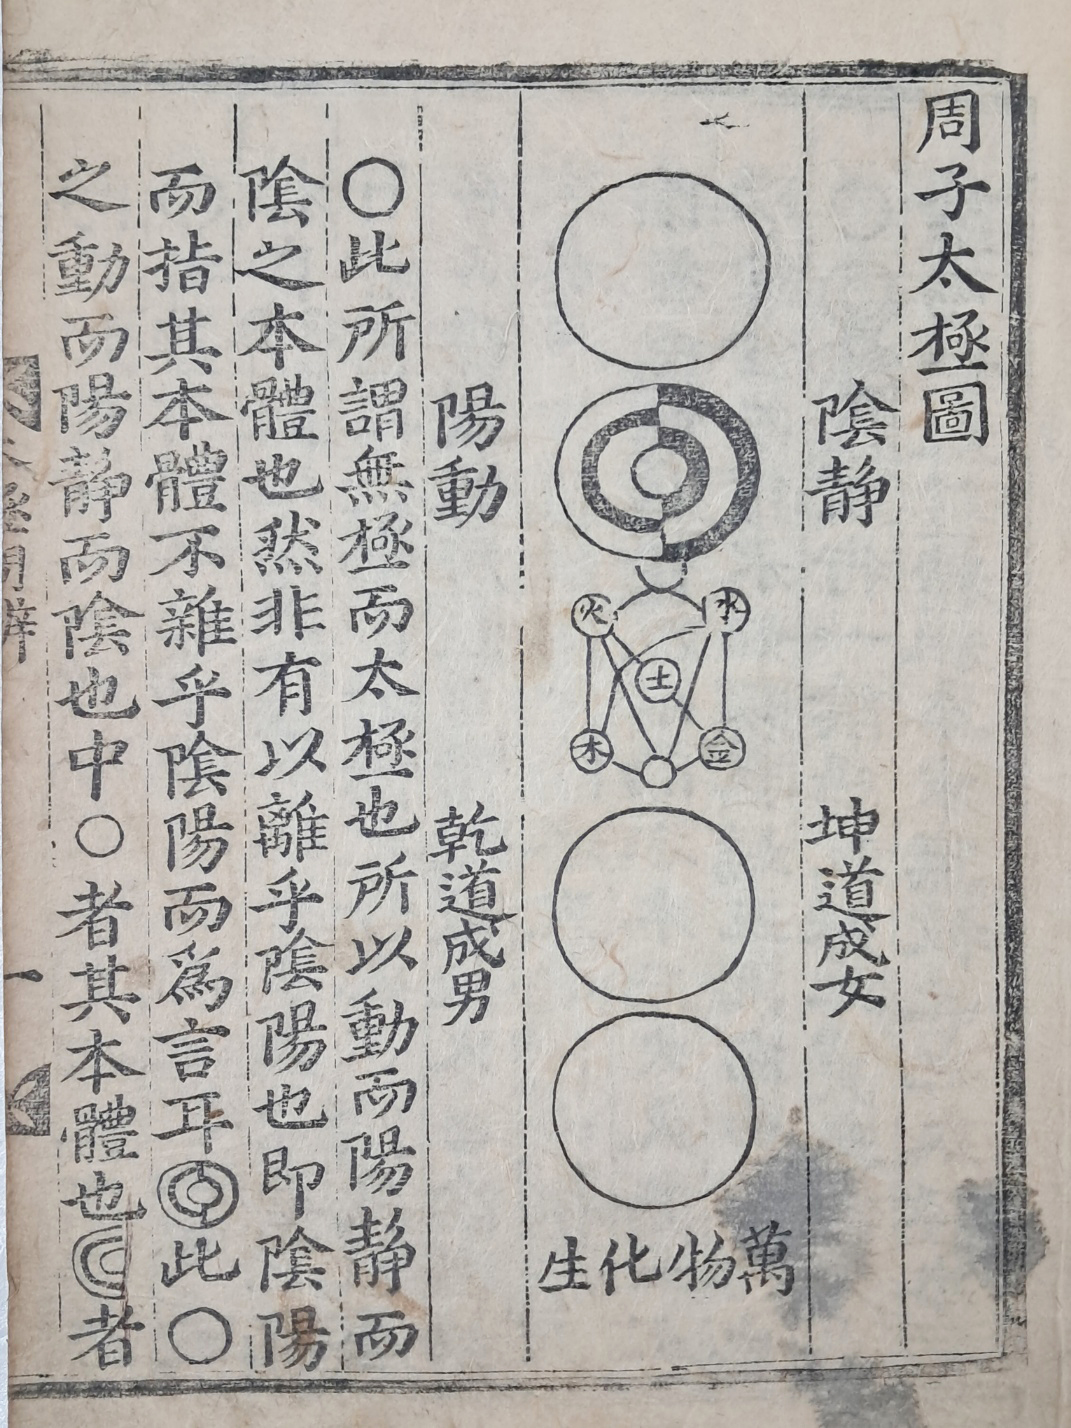 周子太極圖
陰静
坤道成女
火
水
土
木
金
萬物化生
陽動
乾道成男
〇此所謂無極而太極也所以動而陽静而
陰之本體也然非有以離乎陰陽也即陰陽
而指其本體不雜乎陰陽而爲言耳此〇
之動而陽静而陰也中〇者其本體也者
一